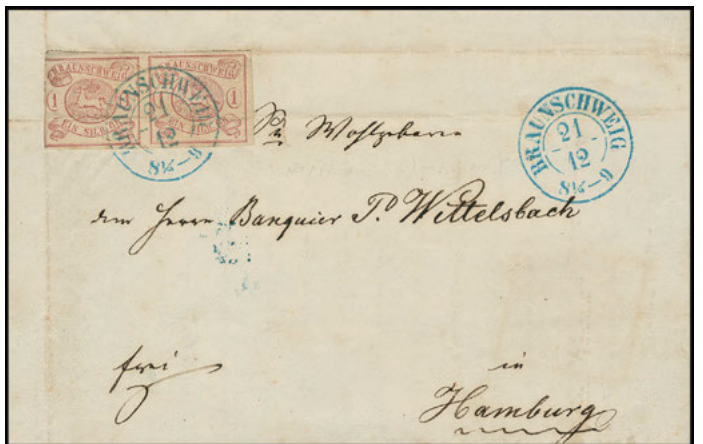 BRAUNSCHWEIG BRAUNSCHWEIG
1 1 1
EIN SILB
BRAUNSCHWEIG
21
12
8½–9
BRAUNSCHWEIG
21
12
8½–9
Sr Wohlgeboren
dem Herrn Banquier P. Wittelsbach
frei
in
Hamburg